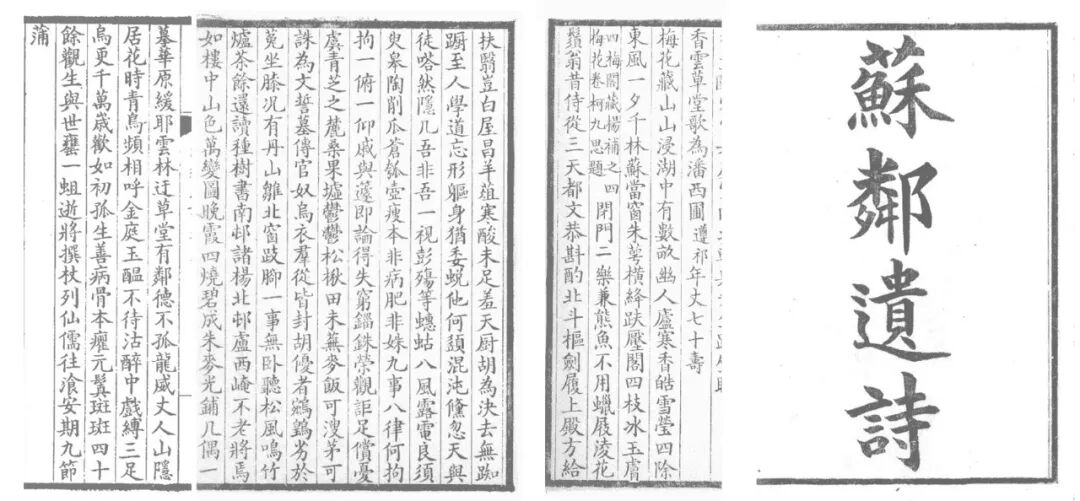 蘇鄰遺詩
香雲草堂歌為潘西圃遵祁年丈七十壽
梅花藏山山浸湖中有數畝幽人廬寒香皓雪瑩四除
東風一夕千林蘇當窗朱萼橫絳趺壓閣四枝冰玉膚
四梅閣藏楊補之四梅花卷柯九思題閉門二樂兼熊魚不用蠟屐淩花
鬚翁昔侍從三天都文恭斟酌北斗樞劍履上殿方給
扶翳豈白屋昌羊葅寒酸未足羞天厨胡為決去無踟
蹰至人學道忘形軀身猶委蛻他何須混沌儵忽天與
徒嗒然隱几吾非吾一視彭殤等蟪蛄八風露電良須
臾皋陶削瓜蒼瓠壺瘦本非病肥非姝九事八律何拘
拘一俯一仰戚與蘧即論得失窮錙銖榮觀詎足償憂
虞青芝之麓桑果墟鬱鬱松楸田未蕪麥飯可溲茅可
誅為文誓墓傳官奴烏衣羣從皆封胡優者鵷鶵劣於
菟坐膝况有丹山雛北窗跂腳一事無卧聽松風鳴竹
爐茶餘還讀種樹書南邨諸楊北邨盧西崦不老將焉
如樓中山色萬變圖晚霞四燒碧成朱麥光鋪几偶一
摹華原緩耶雲林迂草堂有鄰德不孤龍威丈人山隱
居花時青鳥頻相呼金庭玉醞不待沽醉中戲縛三足
烏更千萬歲歡如初孤生善病骨本癯元鬒斑斑四十
餘觀生與世罋一蛆逝將撰杖列仙儒往飡安期九節
蒲